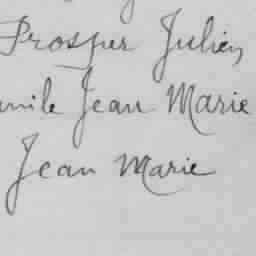 Prosper Julien
mile Jean Marie
Jean Marie